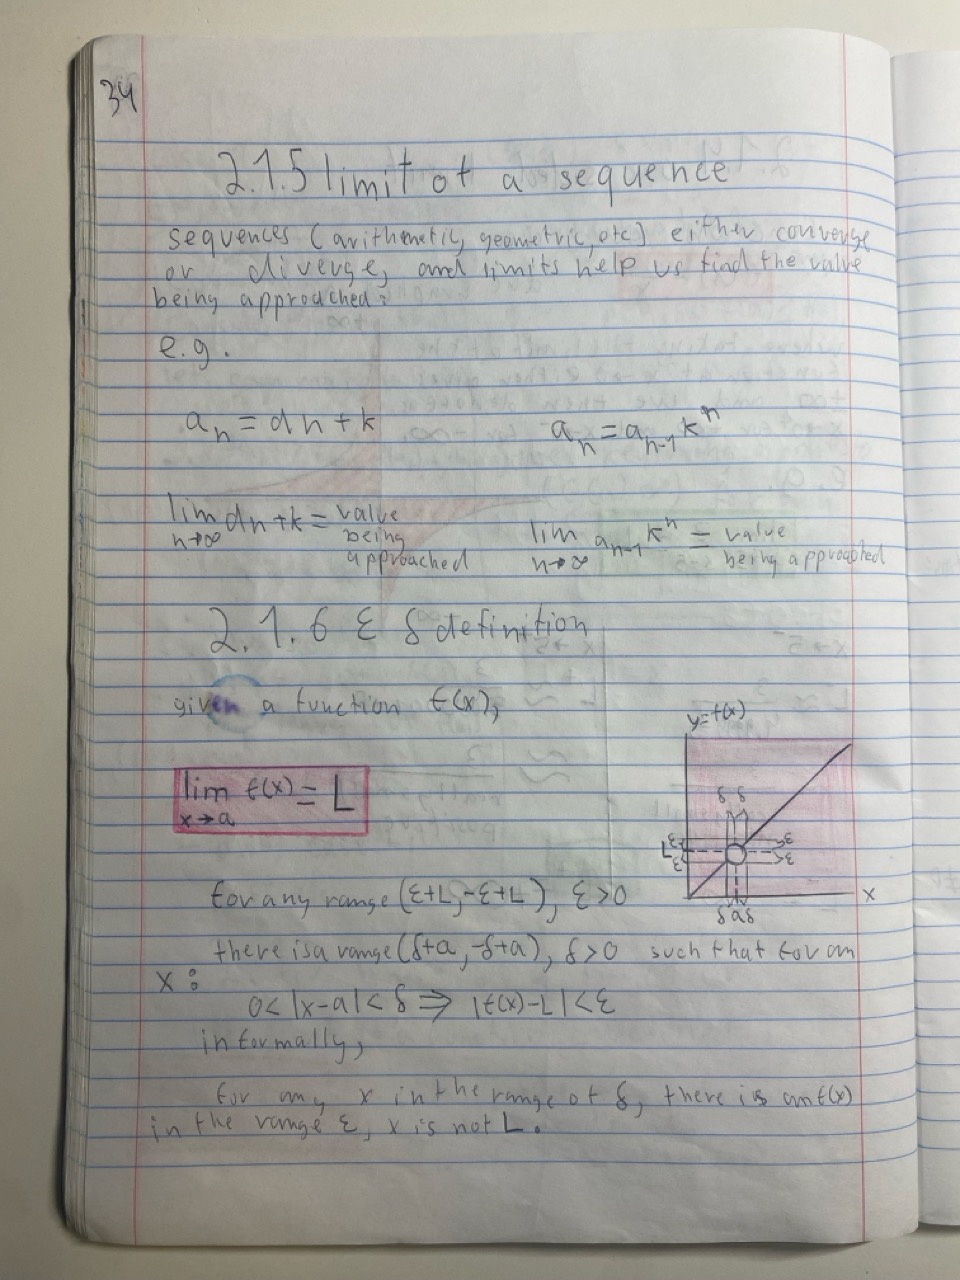 34
2.1.5 limit of a sequence
sequences (arithmetic, geometric, etc) either converge
or diverge, and limits help us find the value
being approached:
e.g.
aₙ = dn+k
aₙ = aₙ₋₁ kⁿ
lim dn+k = value being approached
n→∞
lim aₙ₋₁ kⁿ = value being approached
n→∞
2.1.6 ε δ definition
given a function f(x),
y=f(x)
lim f(x) = L
x→a
δ δ
L
ε
ε
ε
ε
x
δ a δ
for any range (ε+L, -ε+L), ε>0
there is a range (δ+a, -δ+a), δ>0 such that for an
x:
0<|x-a|<δ ⇐ |f(x)-L|<ε
informally,
for any x in the range of δ, there is an f(x)
in the range ε, x is not L.